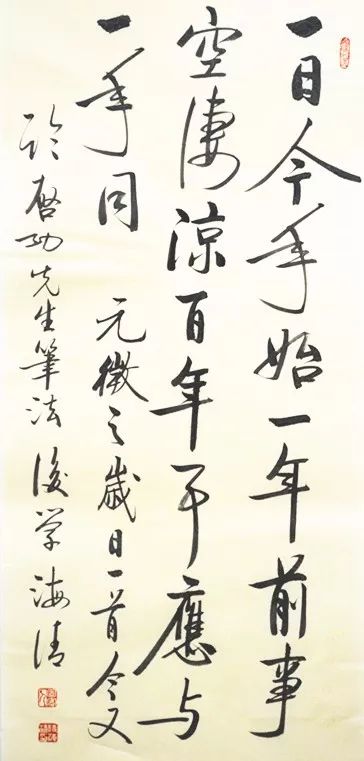 一日今年始一年前事
空淒涼百年事應与
一年同 元微之歲日一首 今又
臨啓功先生筆法 後学海清